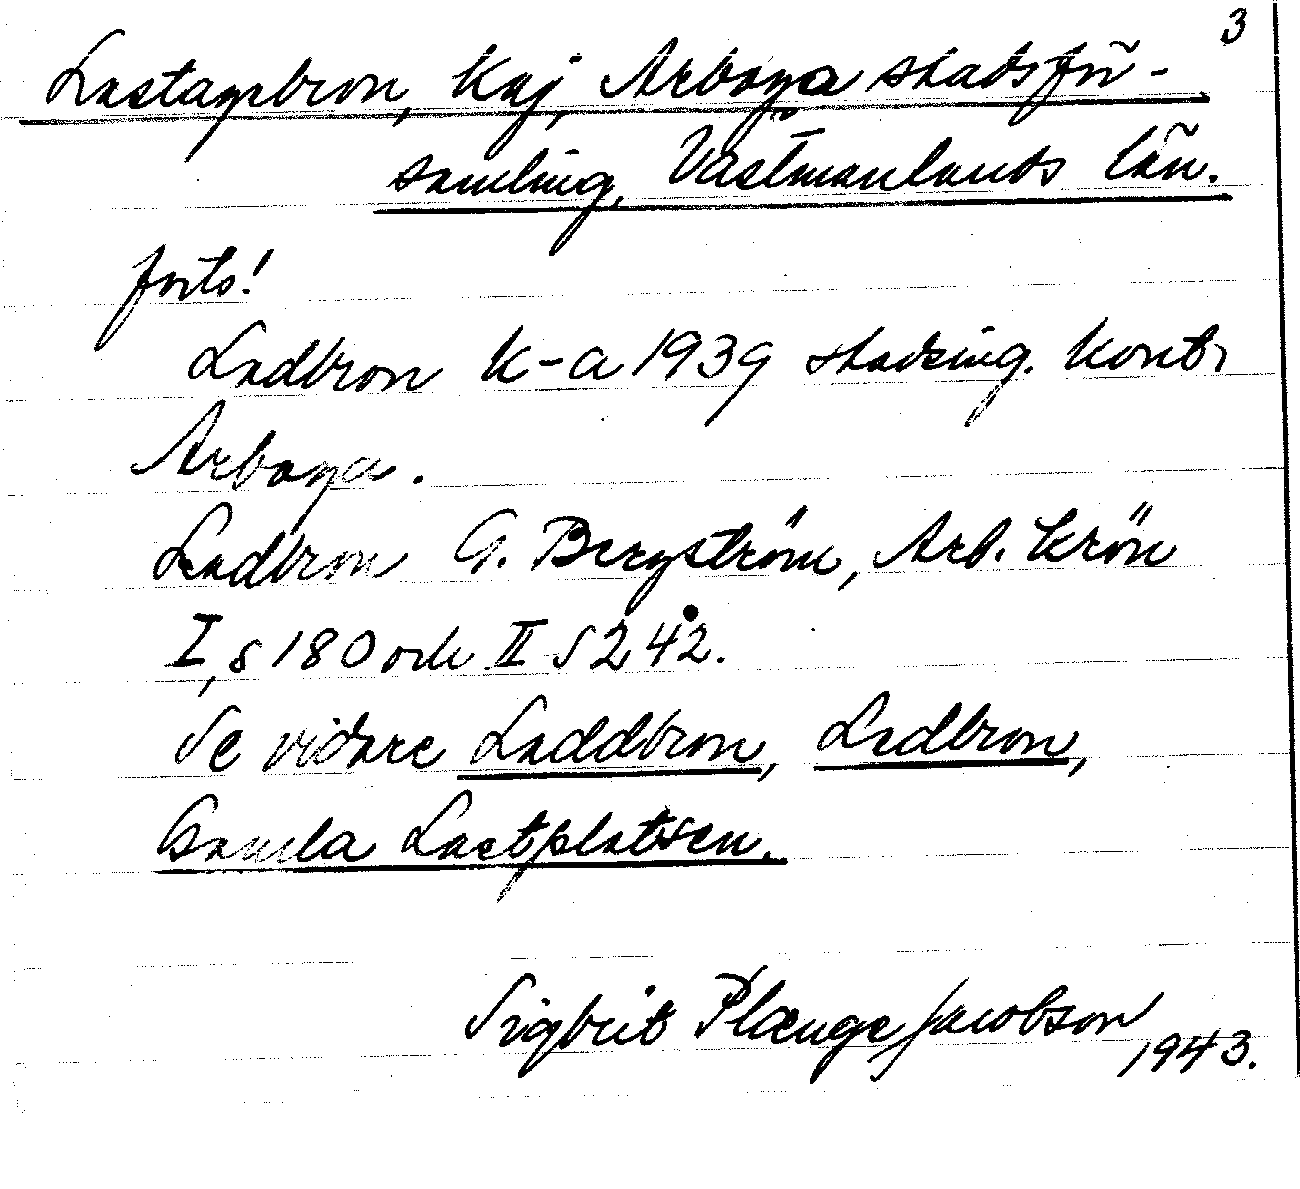 3
Lastagebron, Kaj, Arboga stadsför-
samling, Västmanlands län.
forts!
Ladbron K-a 1939 stadsing. kont.
Arboga.
Ladbron G. Bergström, Arb. krön
I, s 180 och II s 242.
Se vidare Laddbron, Ladbron,
Gamla Lastplatsen.
Sigbrit Plænge Jacobson
1943.